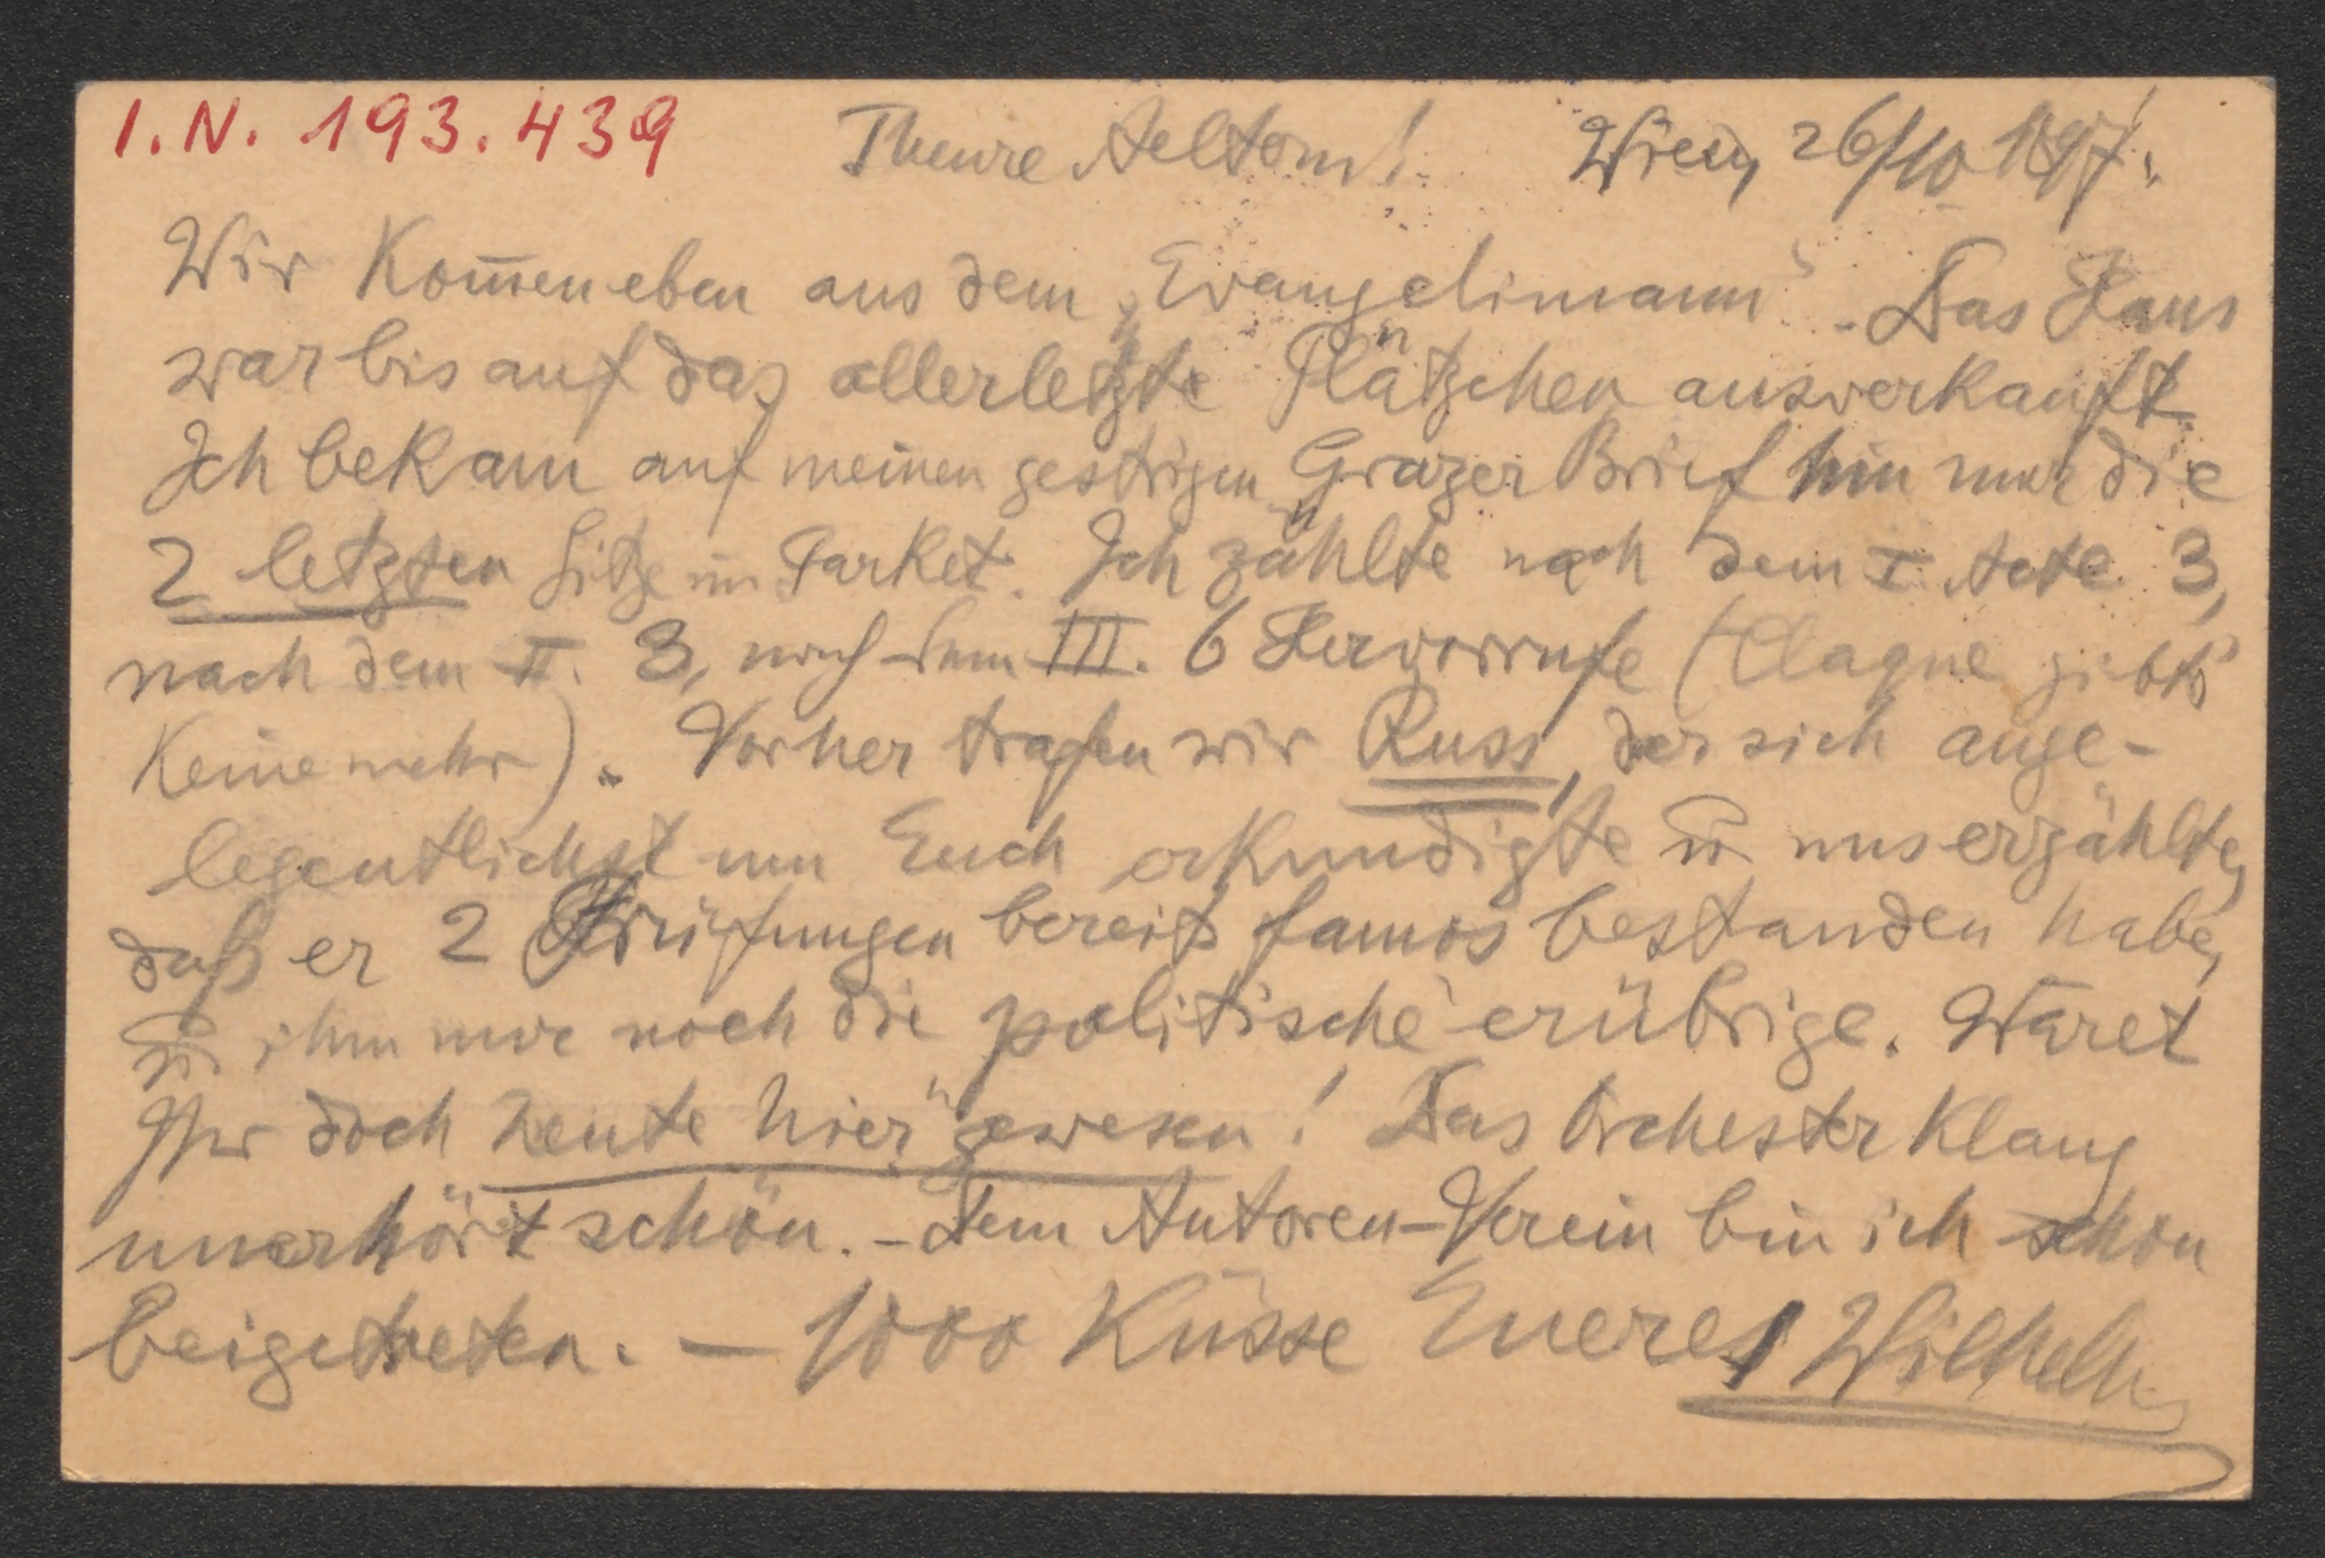 I.N. 193.439
Theure Aeltern! Wien, 26/10 1897.
Wir kom̅en eben aus dem „Evangelimann“. Das Haus
war bis auf das allerletzte Plätzchen ausverkauft.
Ich bekam auf meinen gestrigen Grazer Brief hin nur die
2 letzten Sitze im Parket. Ich zählte nach dem I. Acte 3,
nach dem II. 3, nach dem III. 6 Hervorrufe (Claque gibts
keine mehr). Vorher trafen wir Russ, der sich ange-
legentlichst um Euch erkundigte u̅ uns erzählte,
daß er 2 Prüfungen bereits famos bestanden habe,
u̅ ihm nur noch die politische erübrige. Wäret
Ihr doch heute hier gewesen! Das Orchester klang
unerhört schön. – Dem Autoren-Verein bin ich schon
beigetreten. – 1000 Küsse Eueres Wilhelm